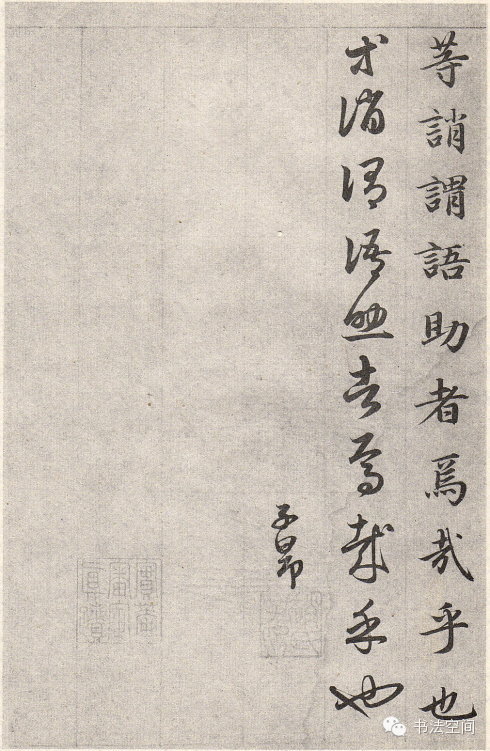 等誚謂語助者焉哉乎也
等誚謂語助者焉哉乎也
子昂
书法空间